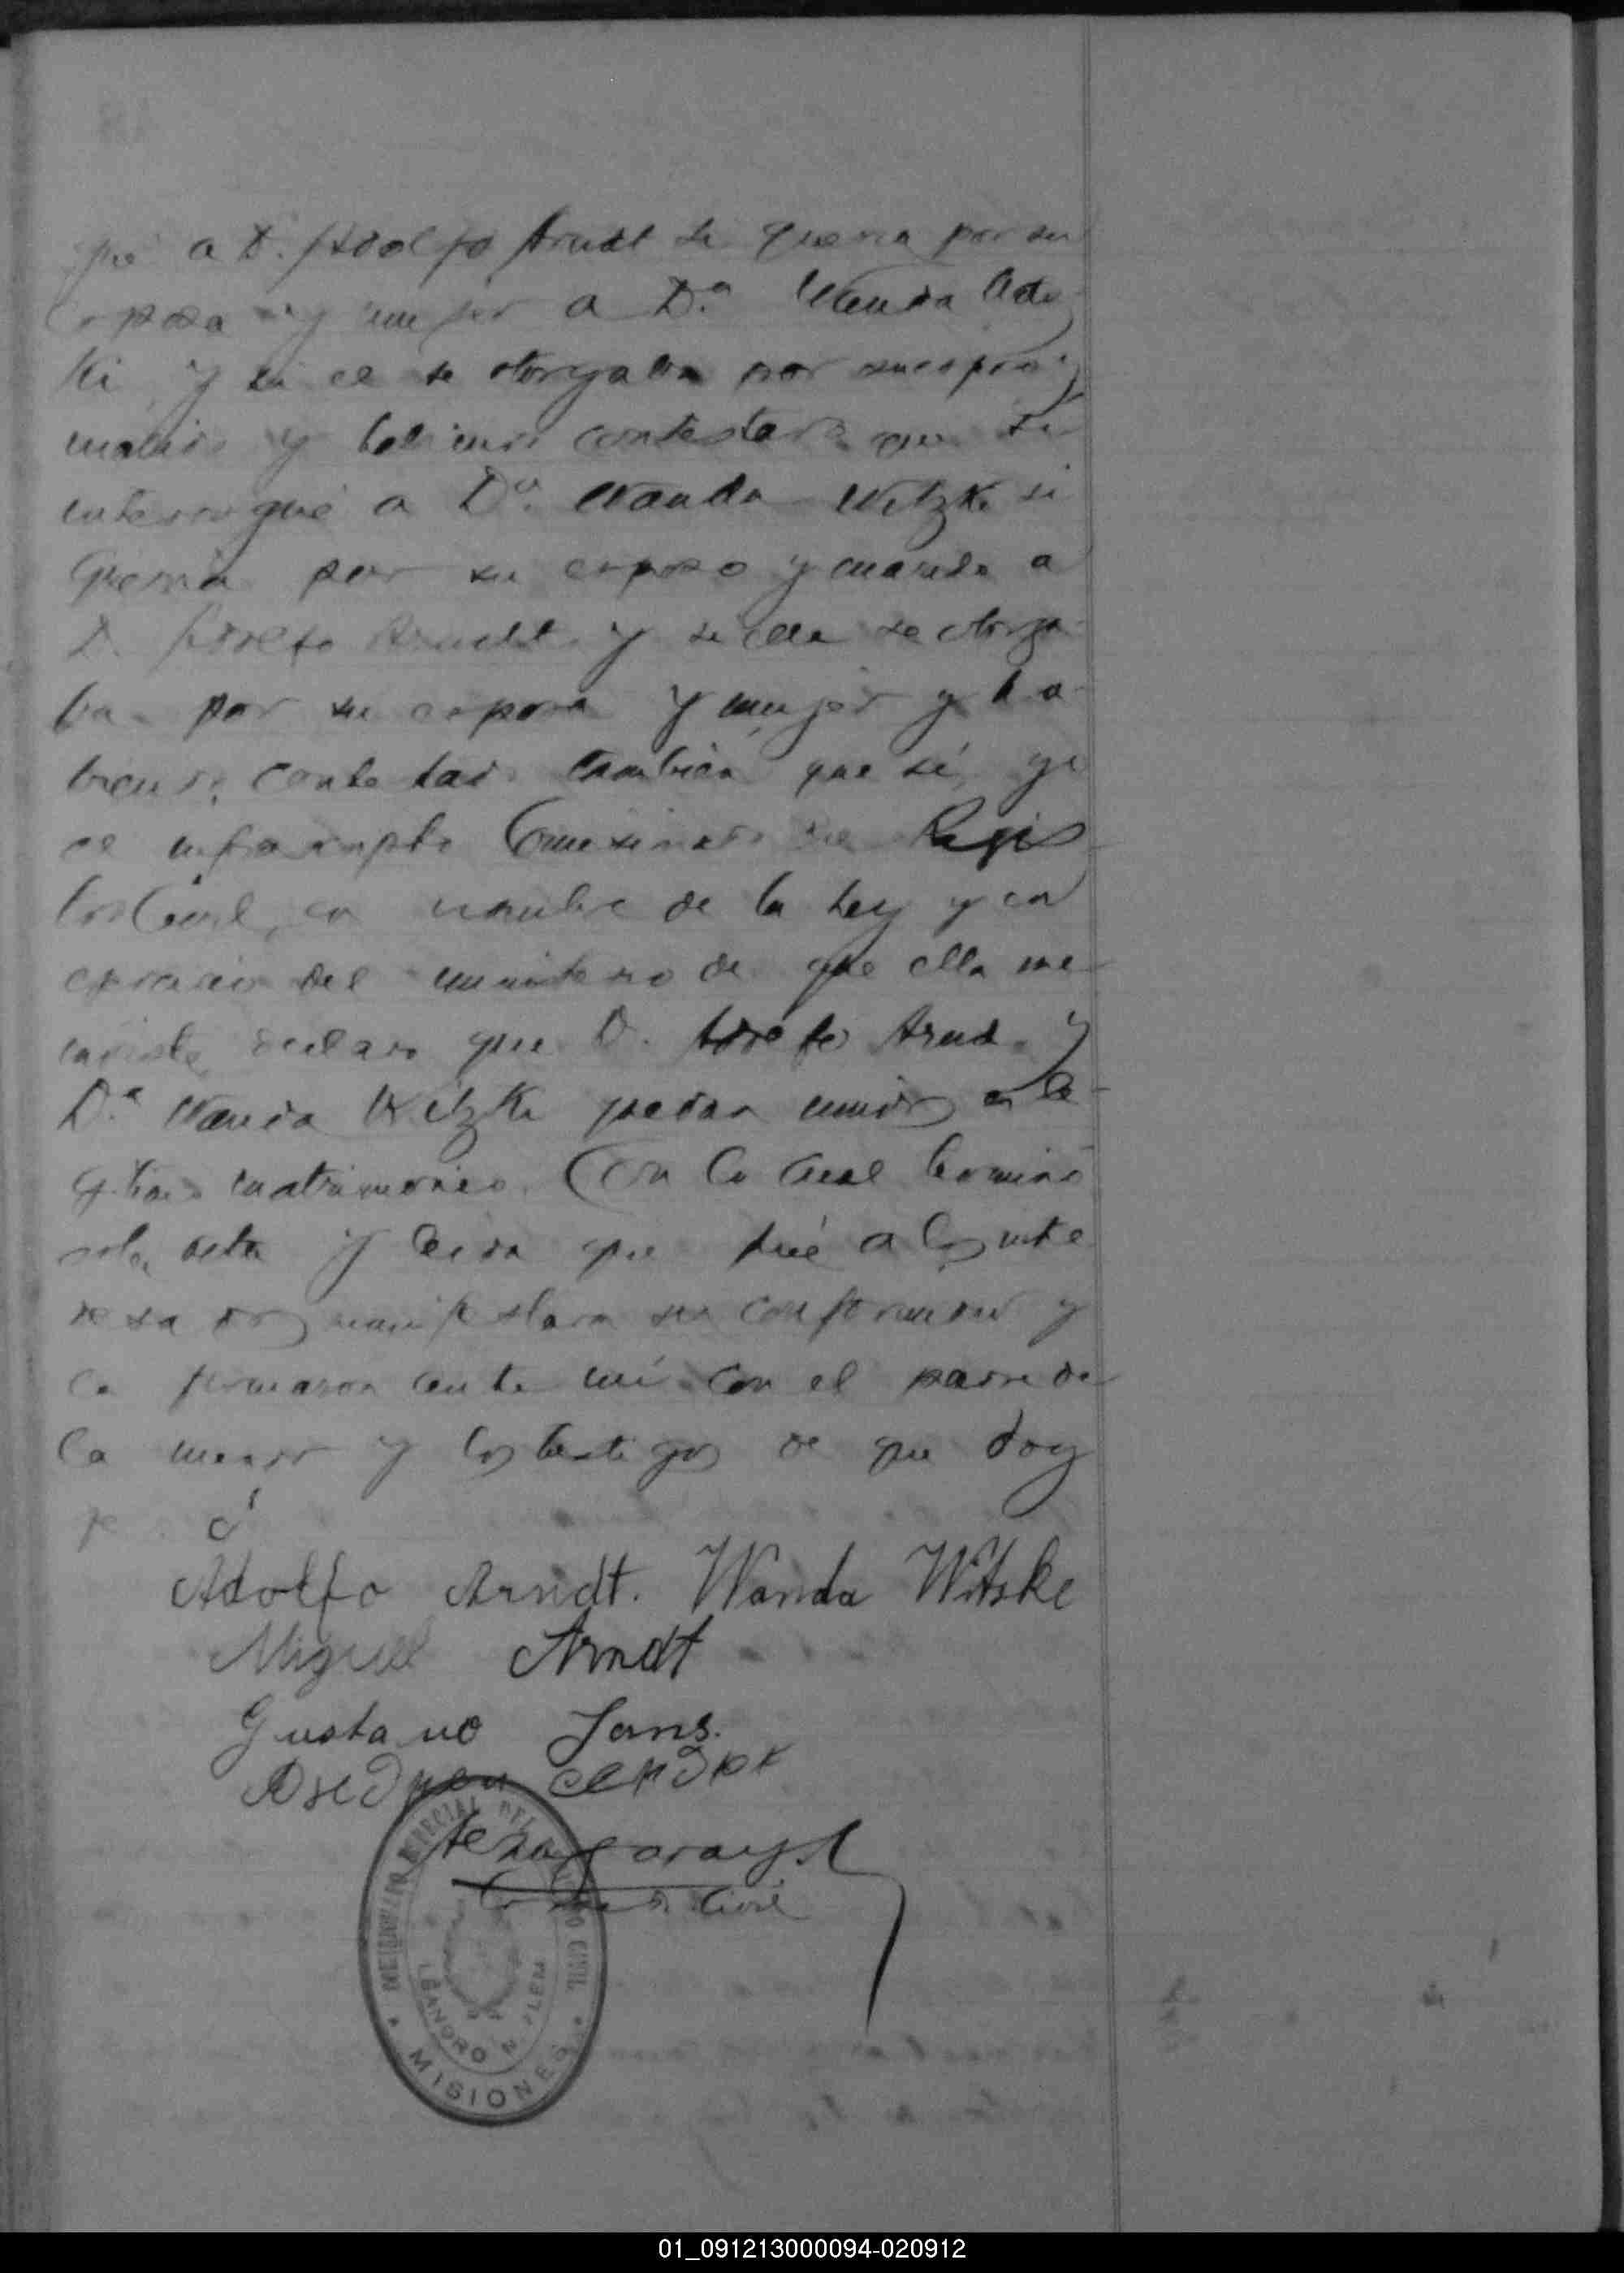 qué a D. Adolfo Arndt si queria por su
esposa y mujer a Dª. Wanda
ki y si el se otorgaba por su esposo y
marido y habiendo contestado que si
interrogué a Dª. Wanda Witzke si
queria por su esposo y marido a
D. Adolfo Arndt y si ella se otorga-
ba por su esposa y mujer y ha-
biendo contestado tambien que sí, yo
el infrascripto Comisionado de Regis-
tro Civil, en nombre de la Ley y en
ejercicio del ministerio de que ella me
inviste declaro que D. Adolfo Arnd y
Dª. Wanda Witzke quedan unidos en le-
gitimo matrimonio. Con lo cual terminó
esta acta y leida que fué a los inte-
resados manifestaron su conformidad y
la firmaron ante mí con el padre de
la menor y los testigos de que doy
fé
Adolfo Arndt. Wanda Witske
Miguel Arndt
Gustavo Jans.
MISIONES
LEANDRO N. ALEM
01_091213000094-020912